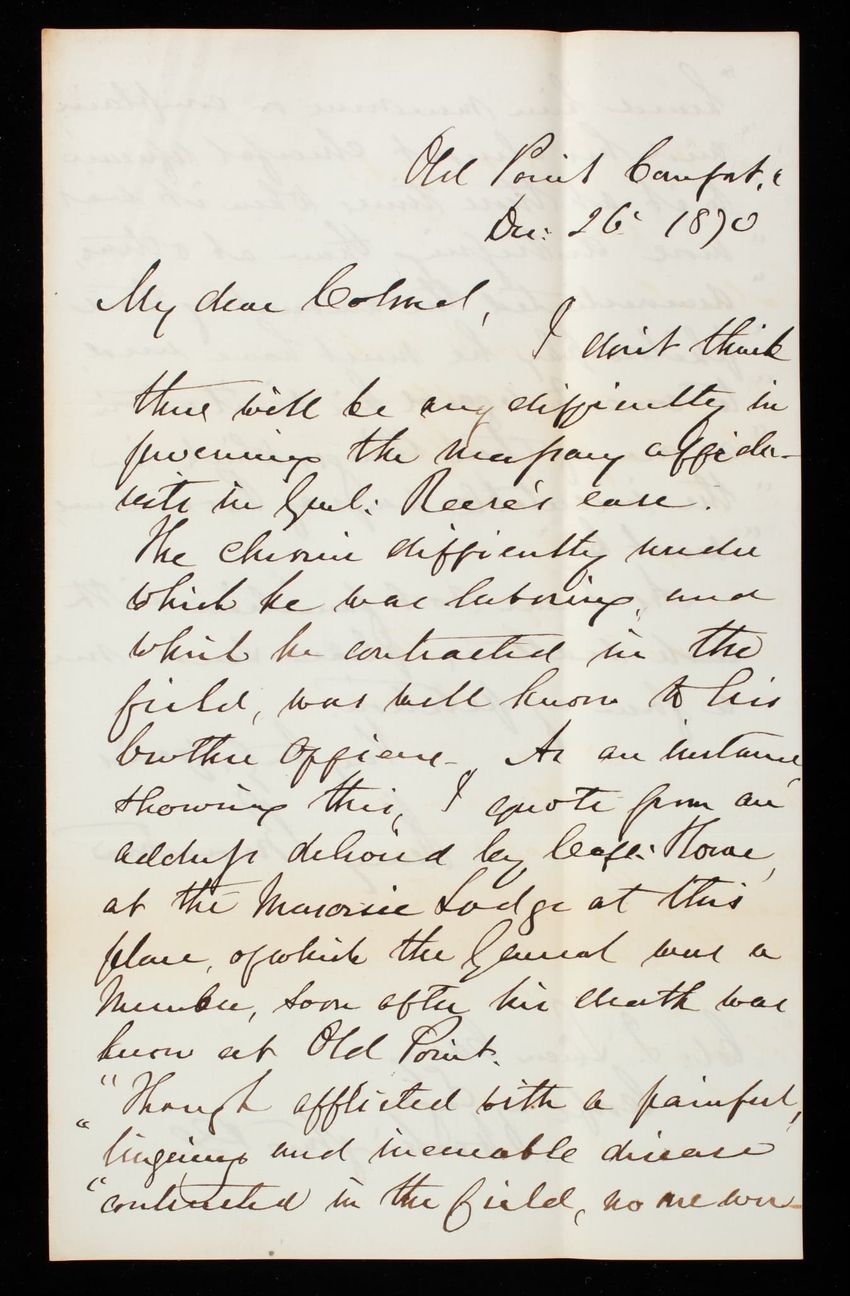 Old Point Comfort,
Dec: 26 1870
My dear Colonel,
I don't think
there will be any difficulty in
procuring the necessary affida-
vits in Genl: Reese's case.
The chronic difficulty under
which he was laboring, and
which he contracted in the
field, was well known to his
brother officers. As an instance
showing this, I quote from an
address deliv'd by Capt: Howe,
at the Masonic Lodge at this
place, of which the General was a
member, soon after his death was
know at Old Point.
"Though afflicted with a painful,
"lingering and incurable disease
"contracted in the field, no one